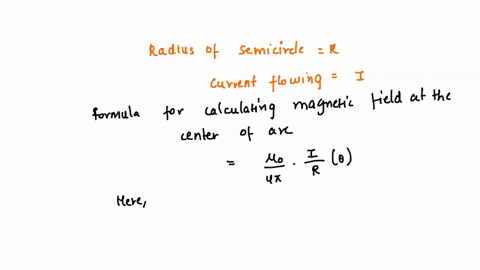 Radius of semicircle = R
Current flowing = I
formula for calculating magnetic field at the
center of arc
= μ₀/4π · I/R (θ)
Here,